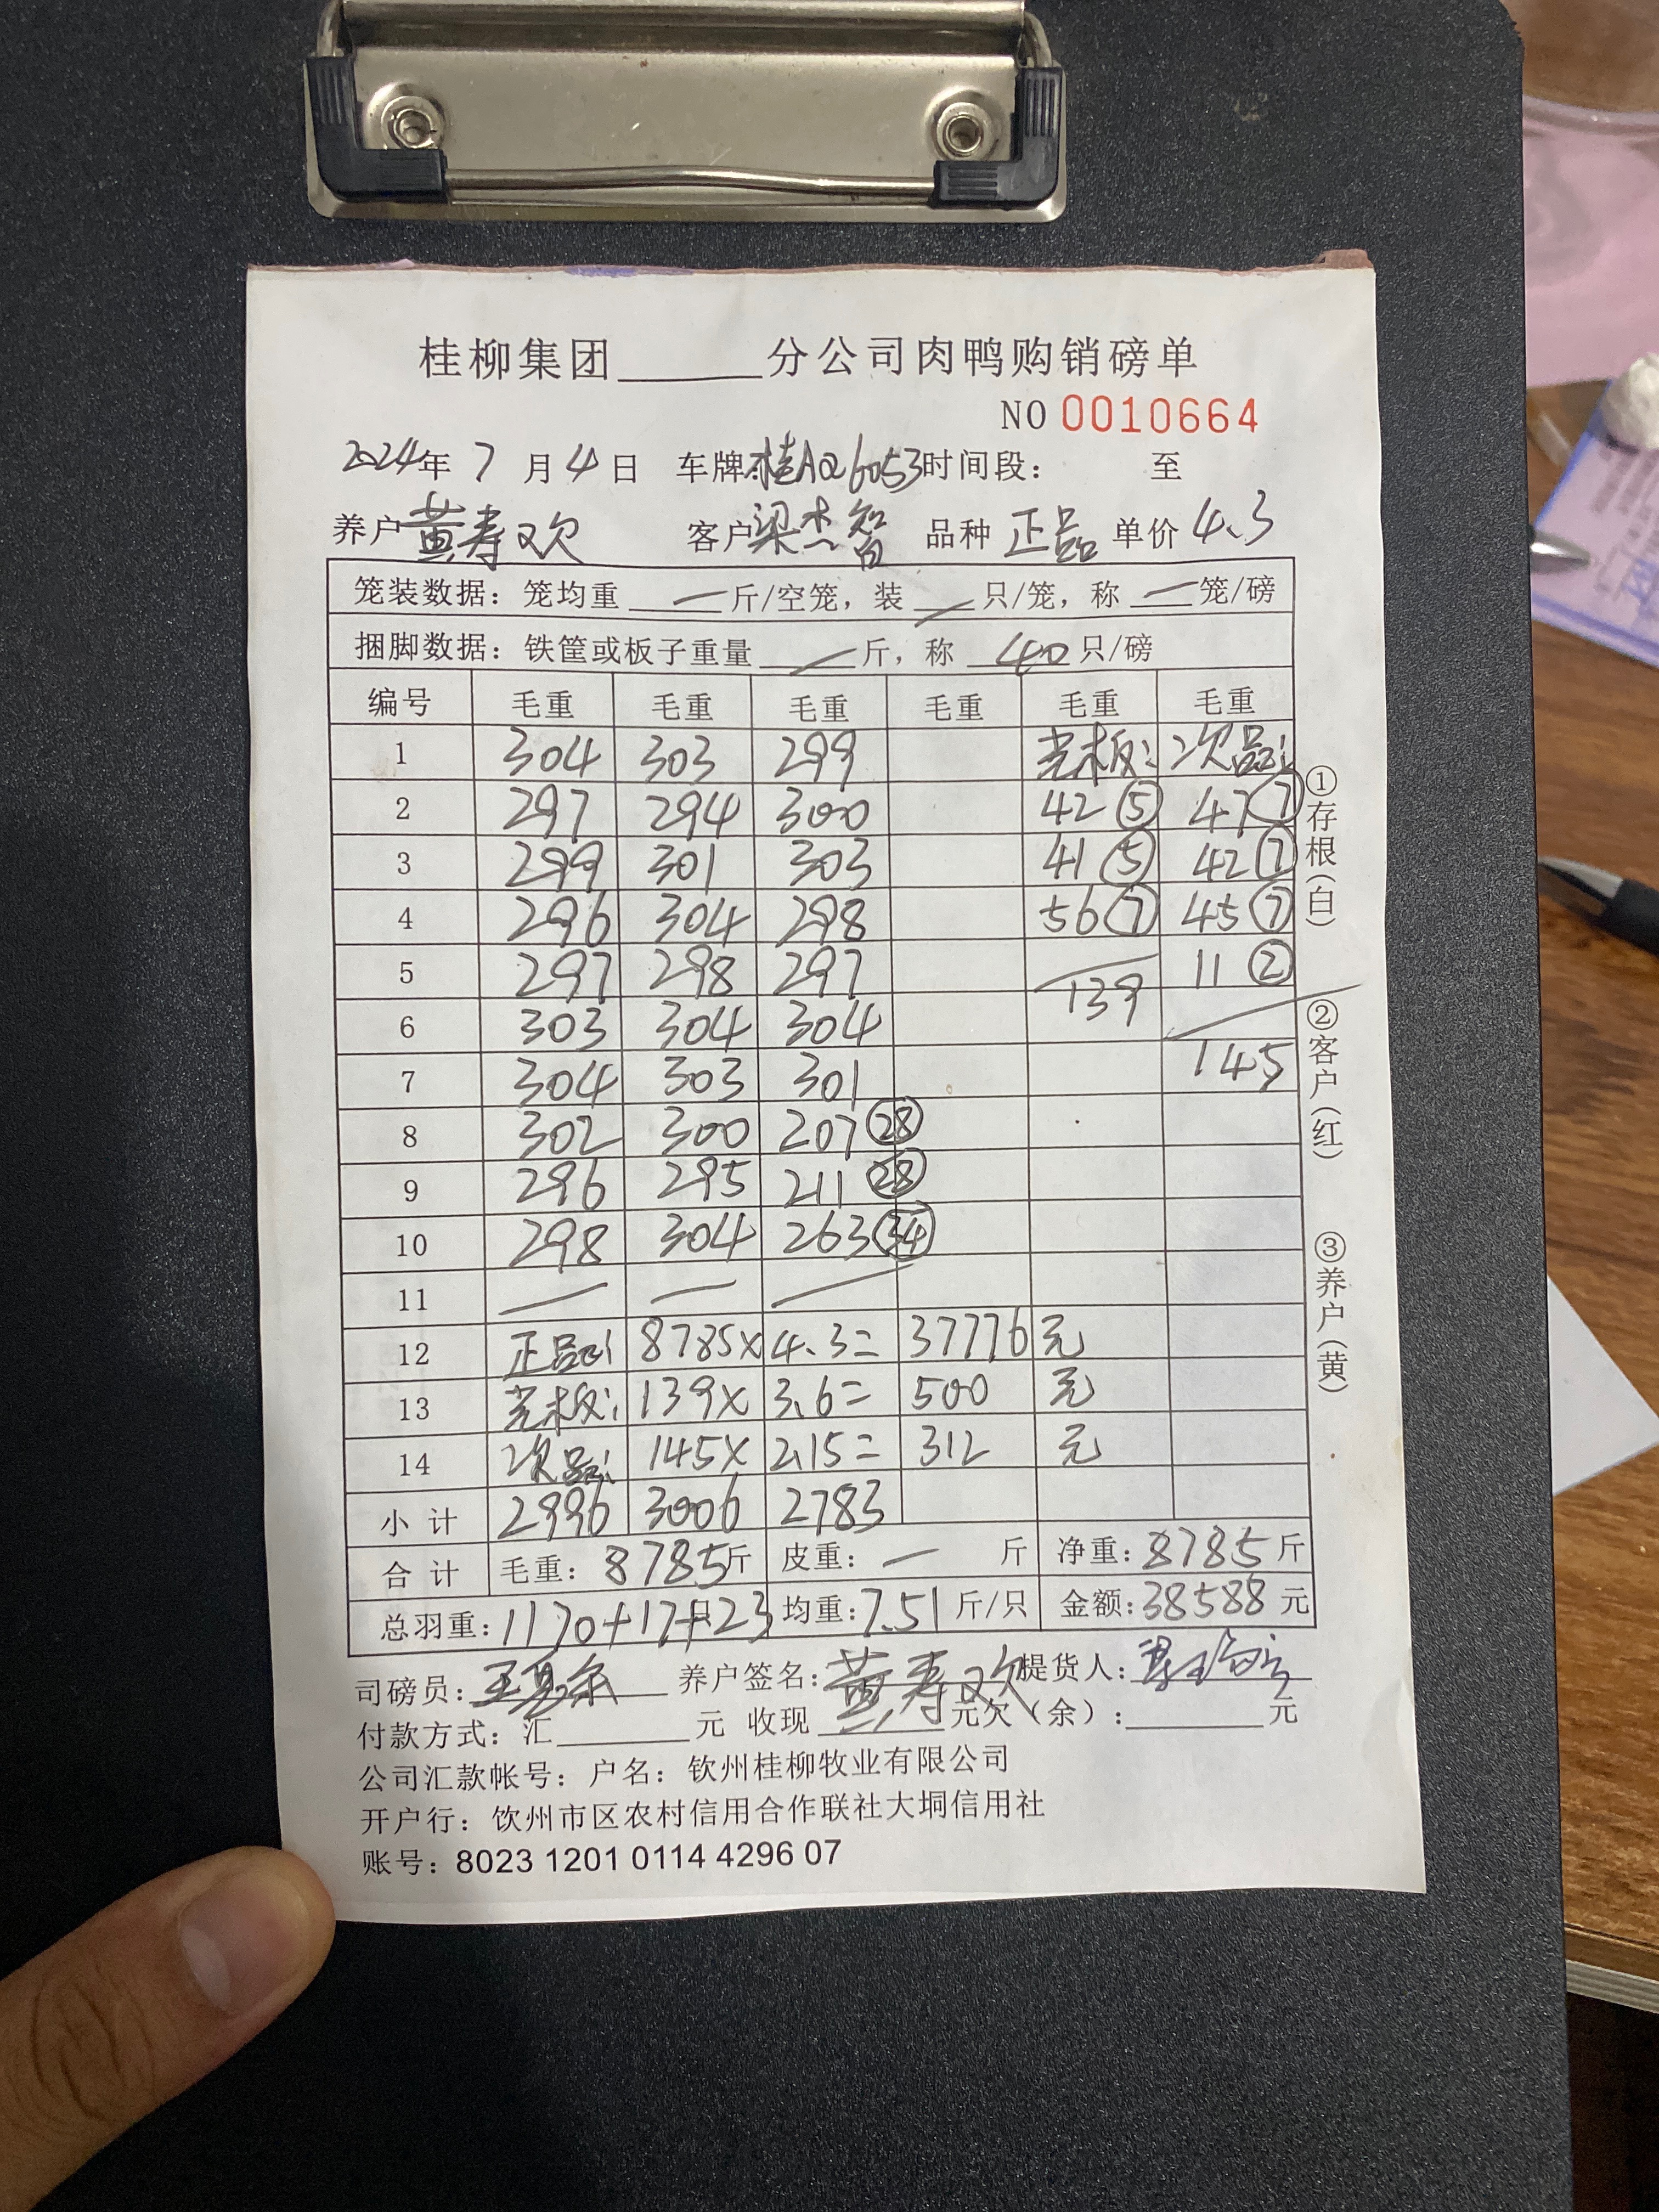 桂柳集团______分公司肉鸭购销磅单
NO 0010664
2024年 7 月 4 日 车牌:桂AQ6053 时间段: 至
养户 黄寿欢 客户 梁杰智 品种 正品 单价 4.3
笼装数据：笼均重 — 斤/空笼，装 — 只/笼，称 — 笼/磅
捆脚数据：铁筐或板子重量 — 斤，称 40 只/磅
编号 毛重 毛重 毛重 毛重 毛重 毛重
1 304 303 299 光板: 次品:
2 297 294 300 42⑤ 47⑦
3 299 301 303 41⑤ 42⑦
4 296 304 298 56⑦ 45⑦
5 297 298 297 139 11②
6 303 304 304
7 304 303 301 145
8 302 300 207㉘
9 296 295 211㉘
10 298 304 263㉞
11 — — —
12 正品: 8785× 4.3= 37776 元
13 光板: 139× 3.6= 500 元
14 次品: 145× 2.15= 312 元
小计 2996 3006 2783
合计 毛重：8785斤 皮重：— 斤 净重：8785斤
总羽重：1170+17+23只 均重：7.51斤/只 金额：38588元
司磅员： 养户签名：黄寿欢 提货人：
付款方式：汇______元 收现______元欠（余）：______元
公司汇款帐号：户名：钦州桂柳牧业有限公司
开户行：饮州市区农村信用合作联社大垌信用社
账号：8023 1201 0114 4296 07
①存根（白）
②客户（红）
③养户（黄）